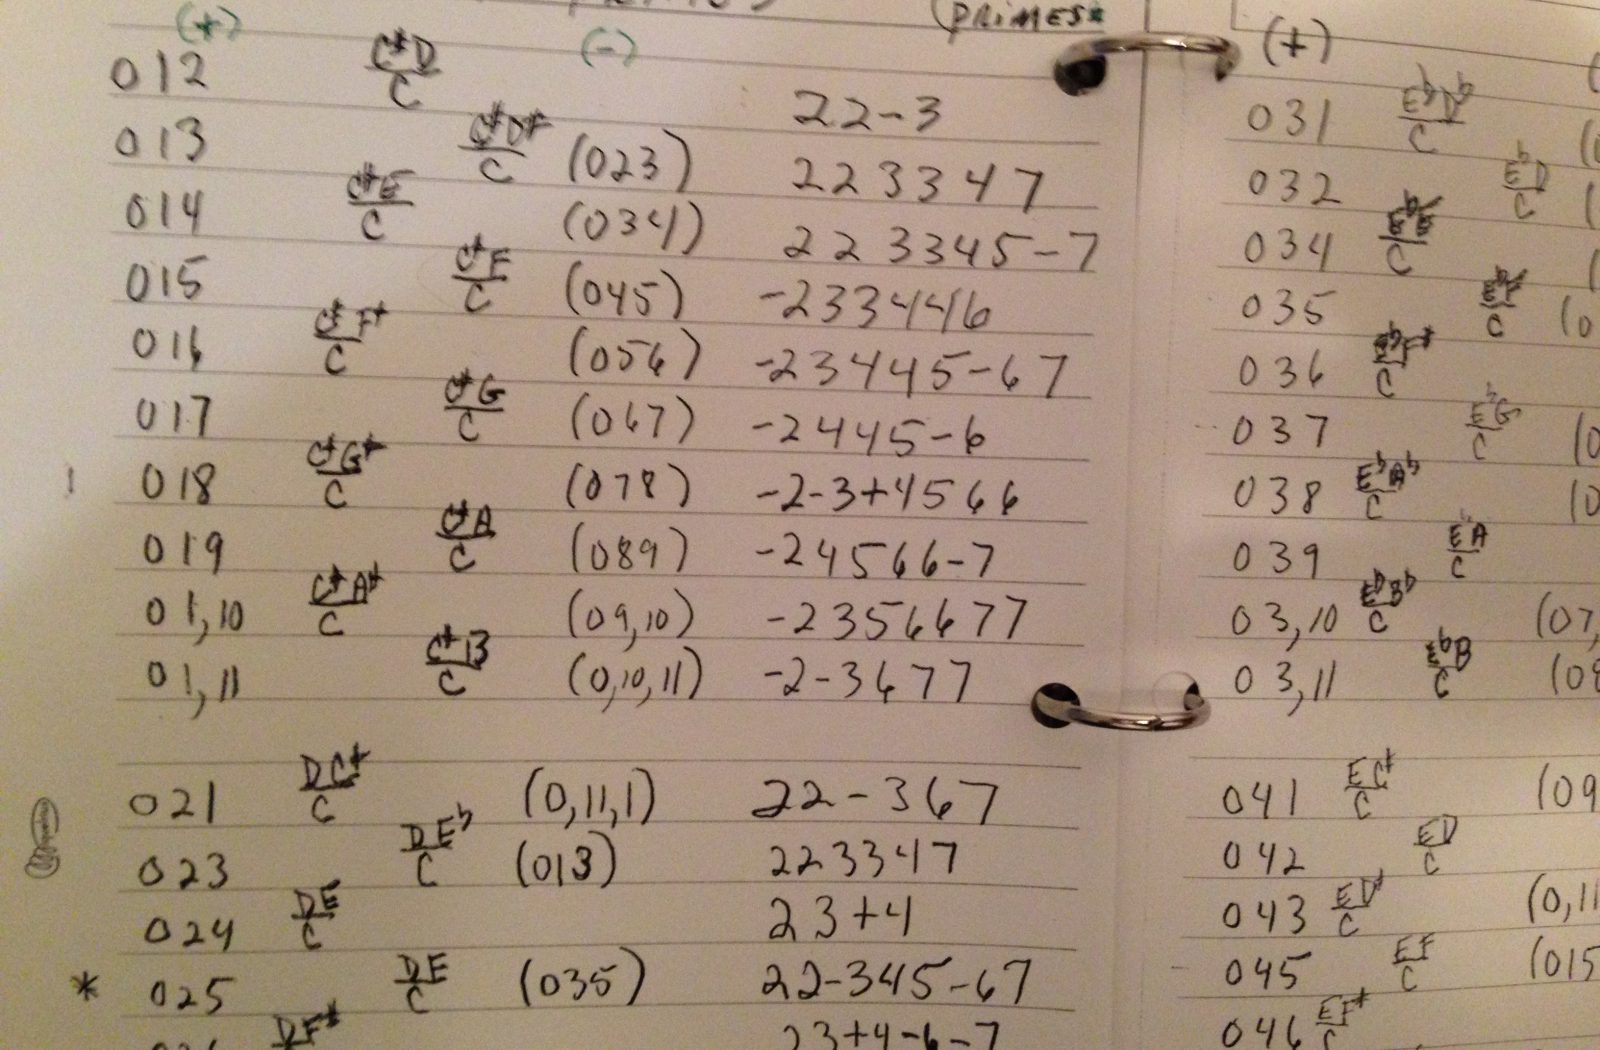 PRIMES*
(+) (-)
012 C#D/C 22-3
013 C#D#/C (023) 223347
014 C#E/C (034) 223345-7
015 C#F/C (045) -233446
016 C#F#/C (056) -23445-67
017 C#G/C (067) -2445-6
018 C#G#/C (078) -2-3+4566
019 C#A/C (089) -24566-7
01,10 C#A#/C (09,10) -2356677
01,11 C#B/C (0,10,11) -2-3677
021 DC#/C (0,11,1) 22-367
023 DEb/C (013) 223347
024 DE/C 23+4
* 025 DE/C (035) 22-345-67
DF# 23+4-6-7
(+)
031 EbDb/C
032 EbD/C
034 C
035 C
036 F#/C
037 EbG/C
038 EbAb/C
039 EbA/C
03,10 EbBb/C (07,
03,11 EbB/C
041 EC#/C (09
042 ED/C
043 ED#/C (0,11
045 EF/C (015
046 EF#/C